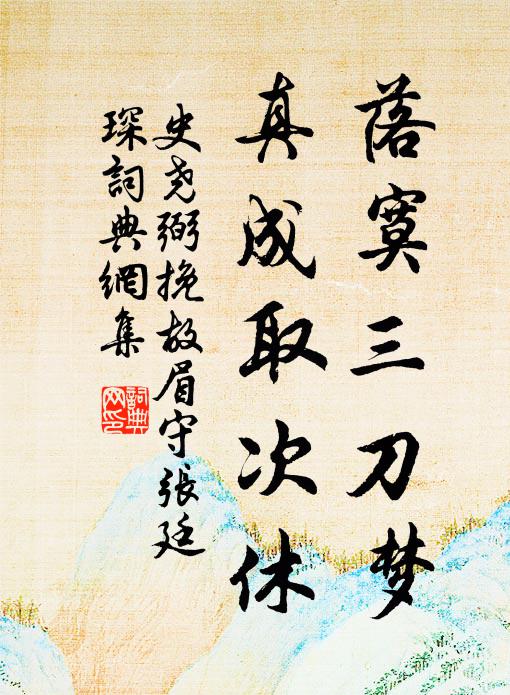 落寞三刀梦
真成取次休
史尧弼挽故眉守張廷
琛詞典網集
詞典网印